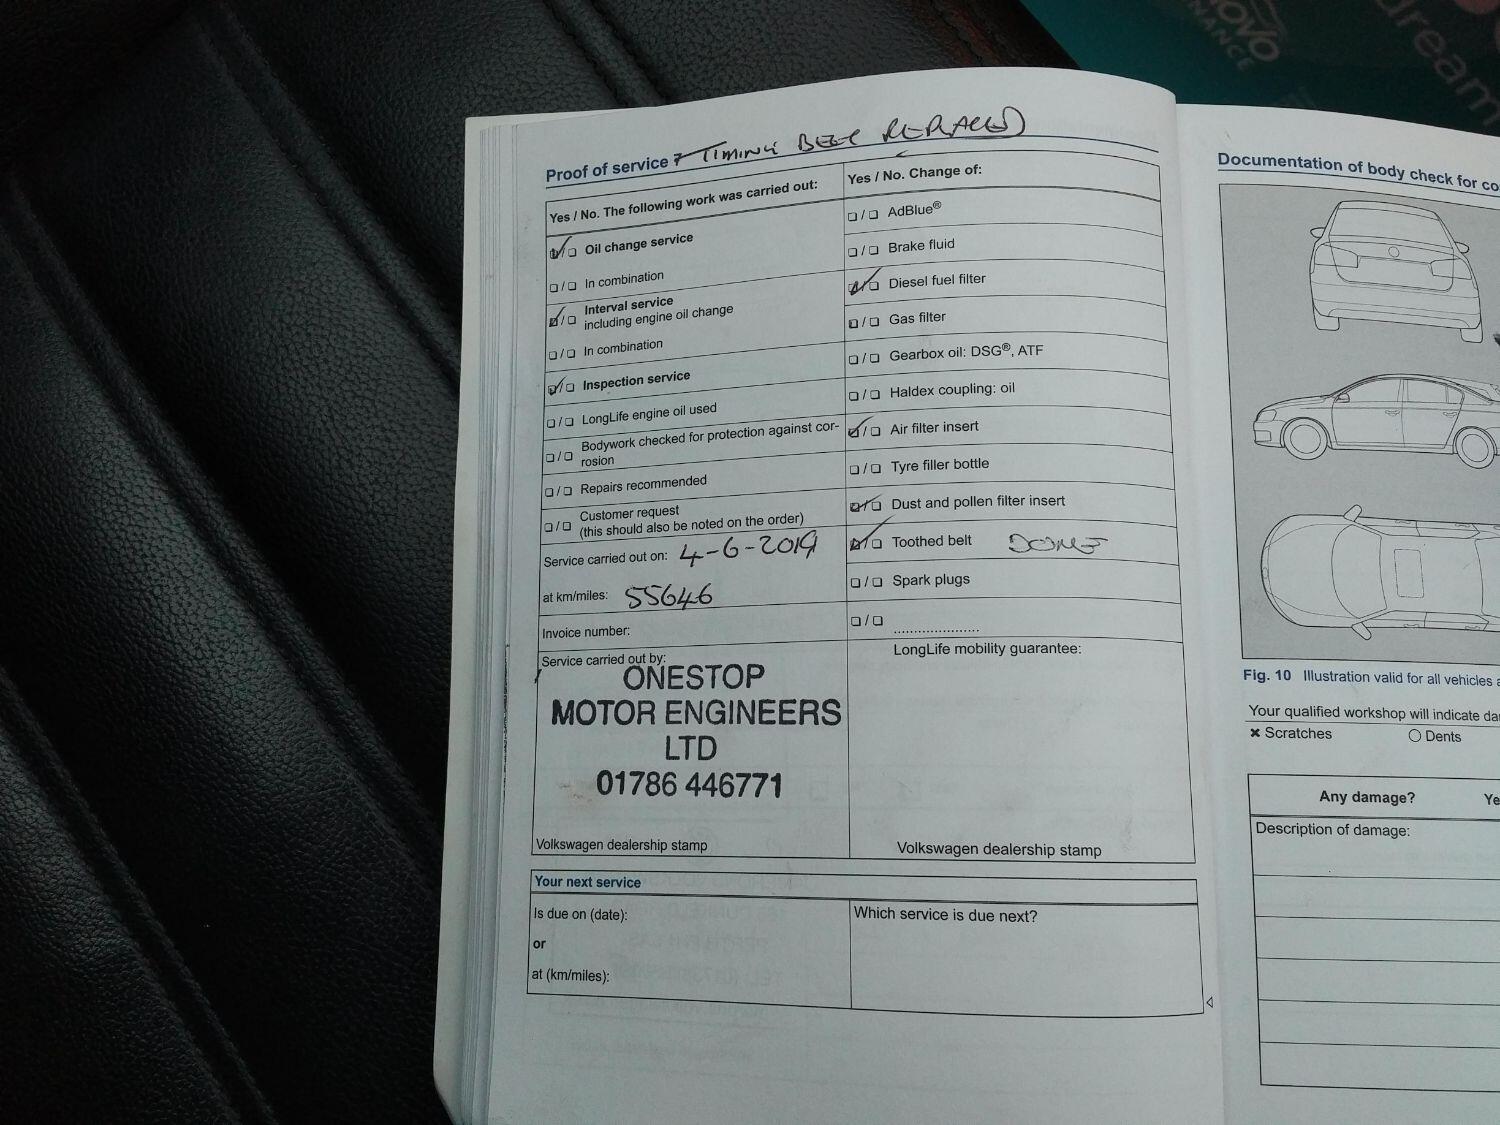 NOVO
NANCE
dream
Proof of service + TIMING BELT REPLACED
Yes / No. The following work was carried out:
Oil change service
In combination
Interval service
including engine oil change
In combination
Inspection service
LongLife engine oil used
Bodywork checked for protection against cor-
rosion
Repairs recommended
Customer request
(this should also be noted on the order)
Service carried out on: 4-6-2019
at km/miles: 55646
Invoice number:
Service carried out by:
ONESTOP
MOTOR ENGINEERS
LTD
01786 446771
Volkswagen dealership stamp
Yes / No. Change of:
AdBlue®
Brake fluid
Diesel fuel filter
Gas filter
Gearbox oil: DSG®, ATF
Haldex coupling: oil
Air filter insert
Tyre filler bottle
Dust and pollen filter insert
Toothed belt DONE
Spark plugs
.....................
LongLife mobility guarantee:
Volkswagen dealership stamp
Your next service
Is due on (date):
or
at (km/miles):
Which service is due next?
Documentation of body check for co
Fig. 10 Illustration valid for all vehicles a
Your qualified workshop will indicate da
× Scratches
○ Dents
Any damage? Ye
Description of damage: